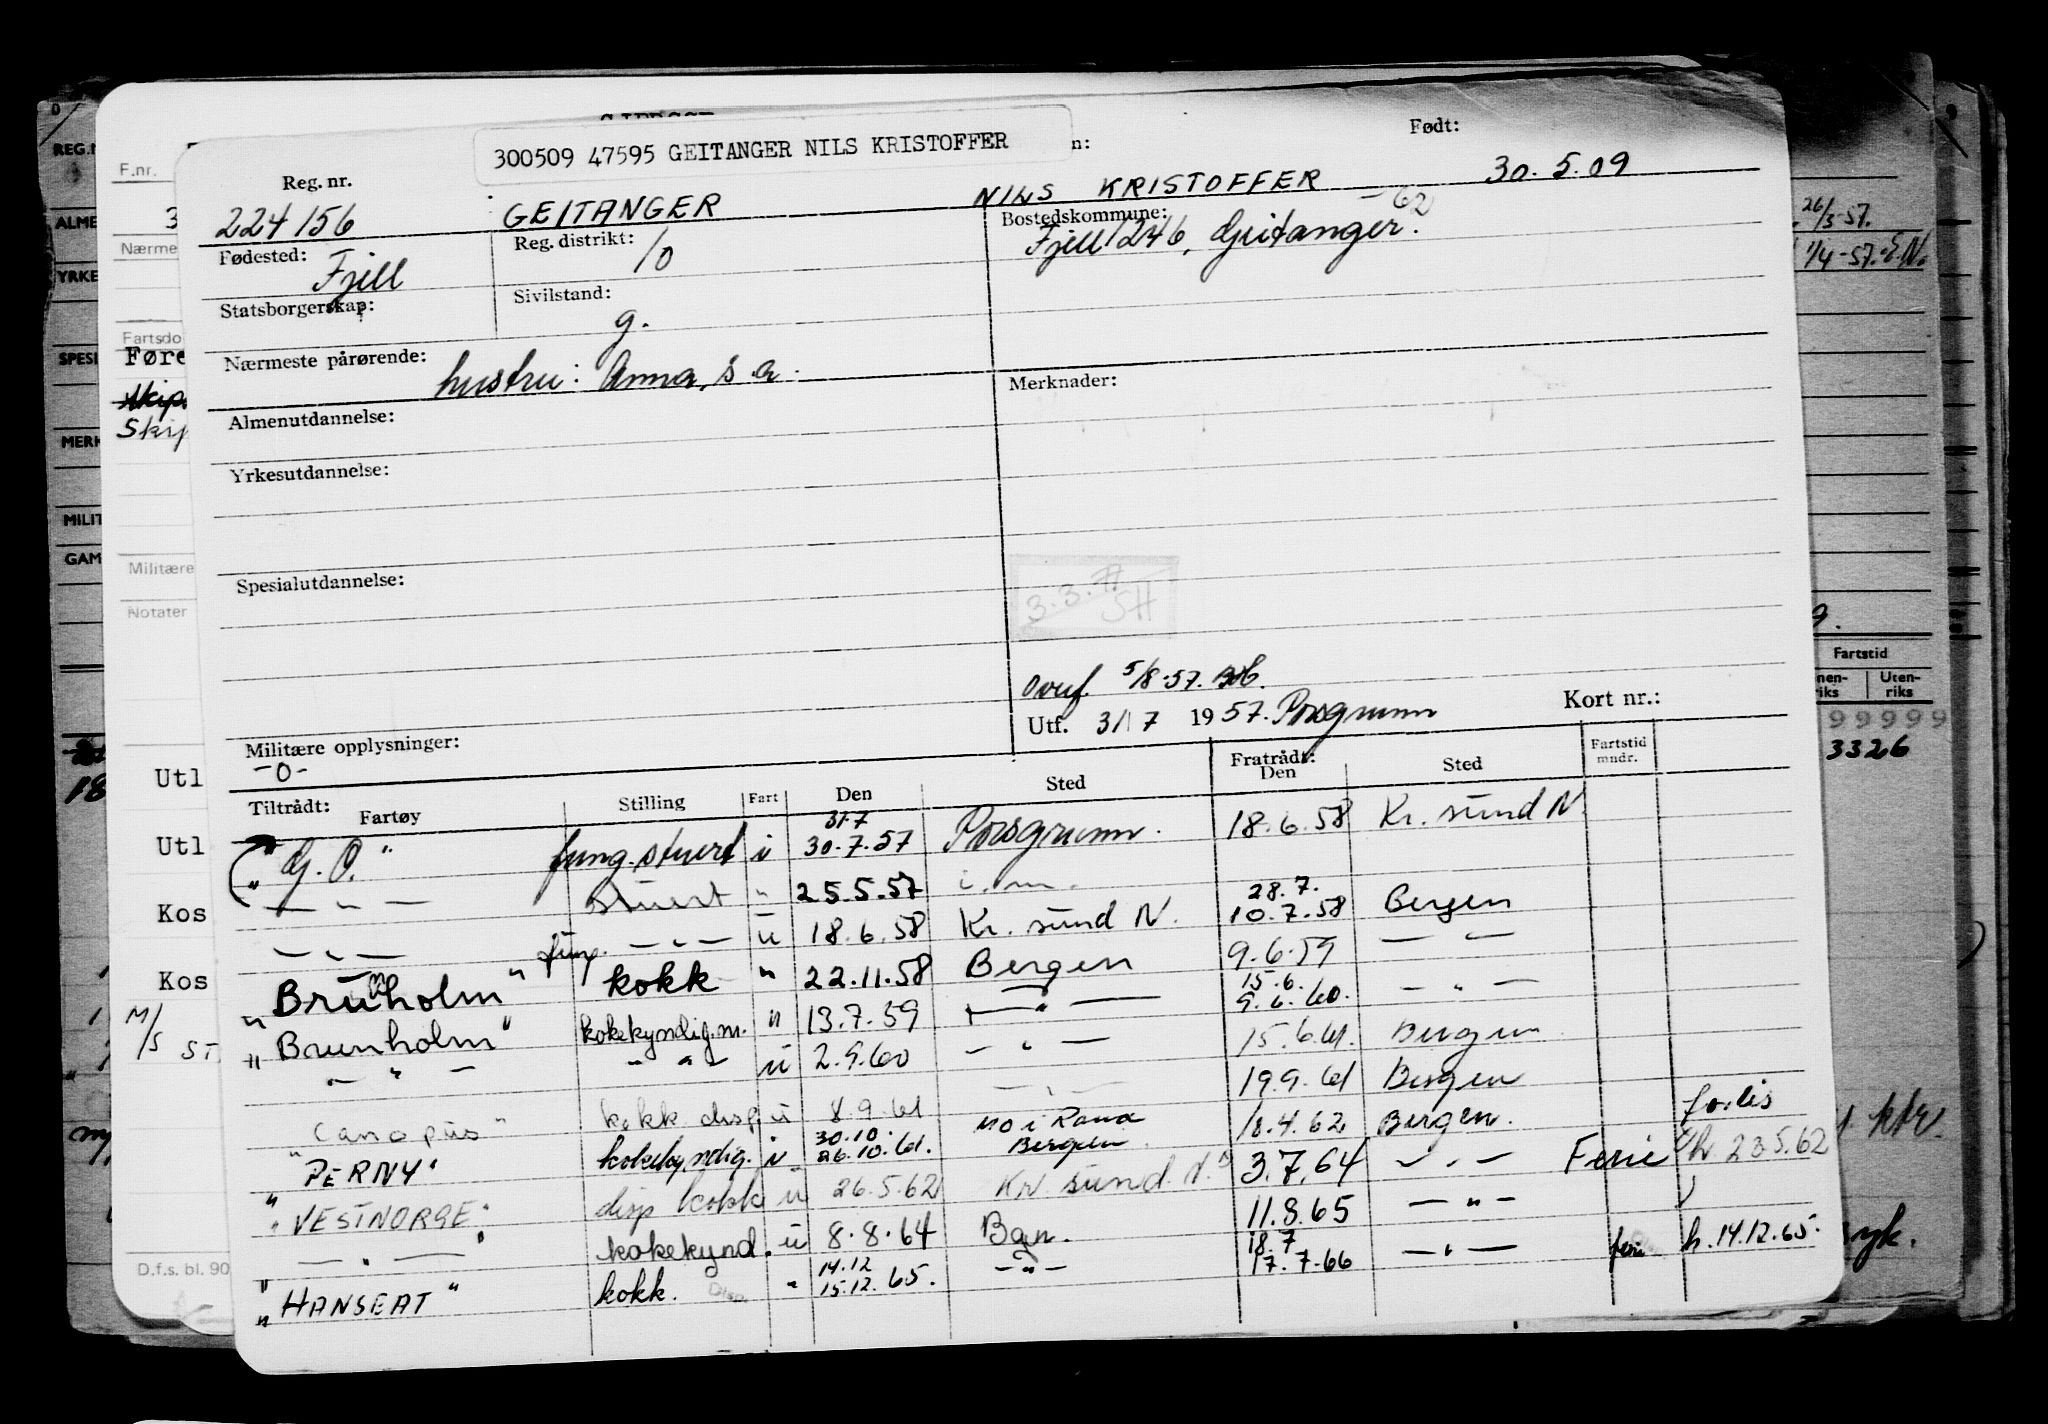 300509 47595 GEITANGER NILS KRISTOFFER
Født:
Reg. nr.
224156 GEITANGER NILS KRISTOFFER 30.5.09
Fødested: Fjell
Reg. distrikt: 10
Bostedskommune: -62
Fjell 1246, Geitanger.
Statsborgerskap:
Sivilstand: g.
Nærmeste pårørende: hustru: Anna, s.a.
Merknader:
Almenutdannelse:
Yrkesutdannelse:
Spesialutdannelse:
3.3.77
SH
Overf. 5/8-57.
Utf. 31/7 1957. Porsgrunn
Kort nr.:
Militære opplysninger:
-0-
Tiltrådt: Fartøy Stilling Fart Den Sted Fratrådt: Den Sted Fartstid mndr.
"G.O." fung. stuert i 31.7 30.7.57 Porsgrunn. 18.6.58 Kr. sund N.
— " — stuert " 25.5.57 i.m. 28.7.
— " — fung. — " — u 18.6.58 Kr. sund N. 10.7.58 Bergen
"Brunholm" kokk " 22.11.58 Bergen 9.6.59 — " —
"Brunholm" kokekyndig.m. " 13.7.59 — " — 15.6. 9.6.60. — " —
— " — — " — u 2.9.60 — " — 15.6.61. Bergen
"Canopus" kokk disp. u 8.9.61 — " — 19.9.61 Bergen
"PERNY" kokekyndig. i 30.10. 26.10.61. Mo i Rana Bergen 18.4.62 Bergen.
"VESTNORGE" disp kokk u 26.5.62 Kr. sund. N. 3.7.64 — " — Ferie h. 23.5.62
— " — kokekynd. u 8.8.64 Bgn. 11.8.65 — " —
"HANSEAT" kokk. Disp. " 14.12 15.12.65. — " — 18.7 17.7.66 — " — ferie h. 14.12.65.
F.nr.
3
Nærme
Fartsdo
Føre
Skip.
Militære
Notater
Utl
Utl
Kos
Kos
M/S ST
D.f.s. bl. 90
REG.N
ALME
YRKE
SPESI
MERK
MILIT
GAM
18
26/3-57.
1/4-57. E.N.
9.
Fartstid
nen-
riks
Uten-
riks
99999
3326